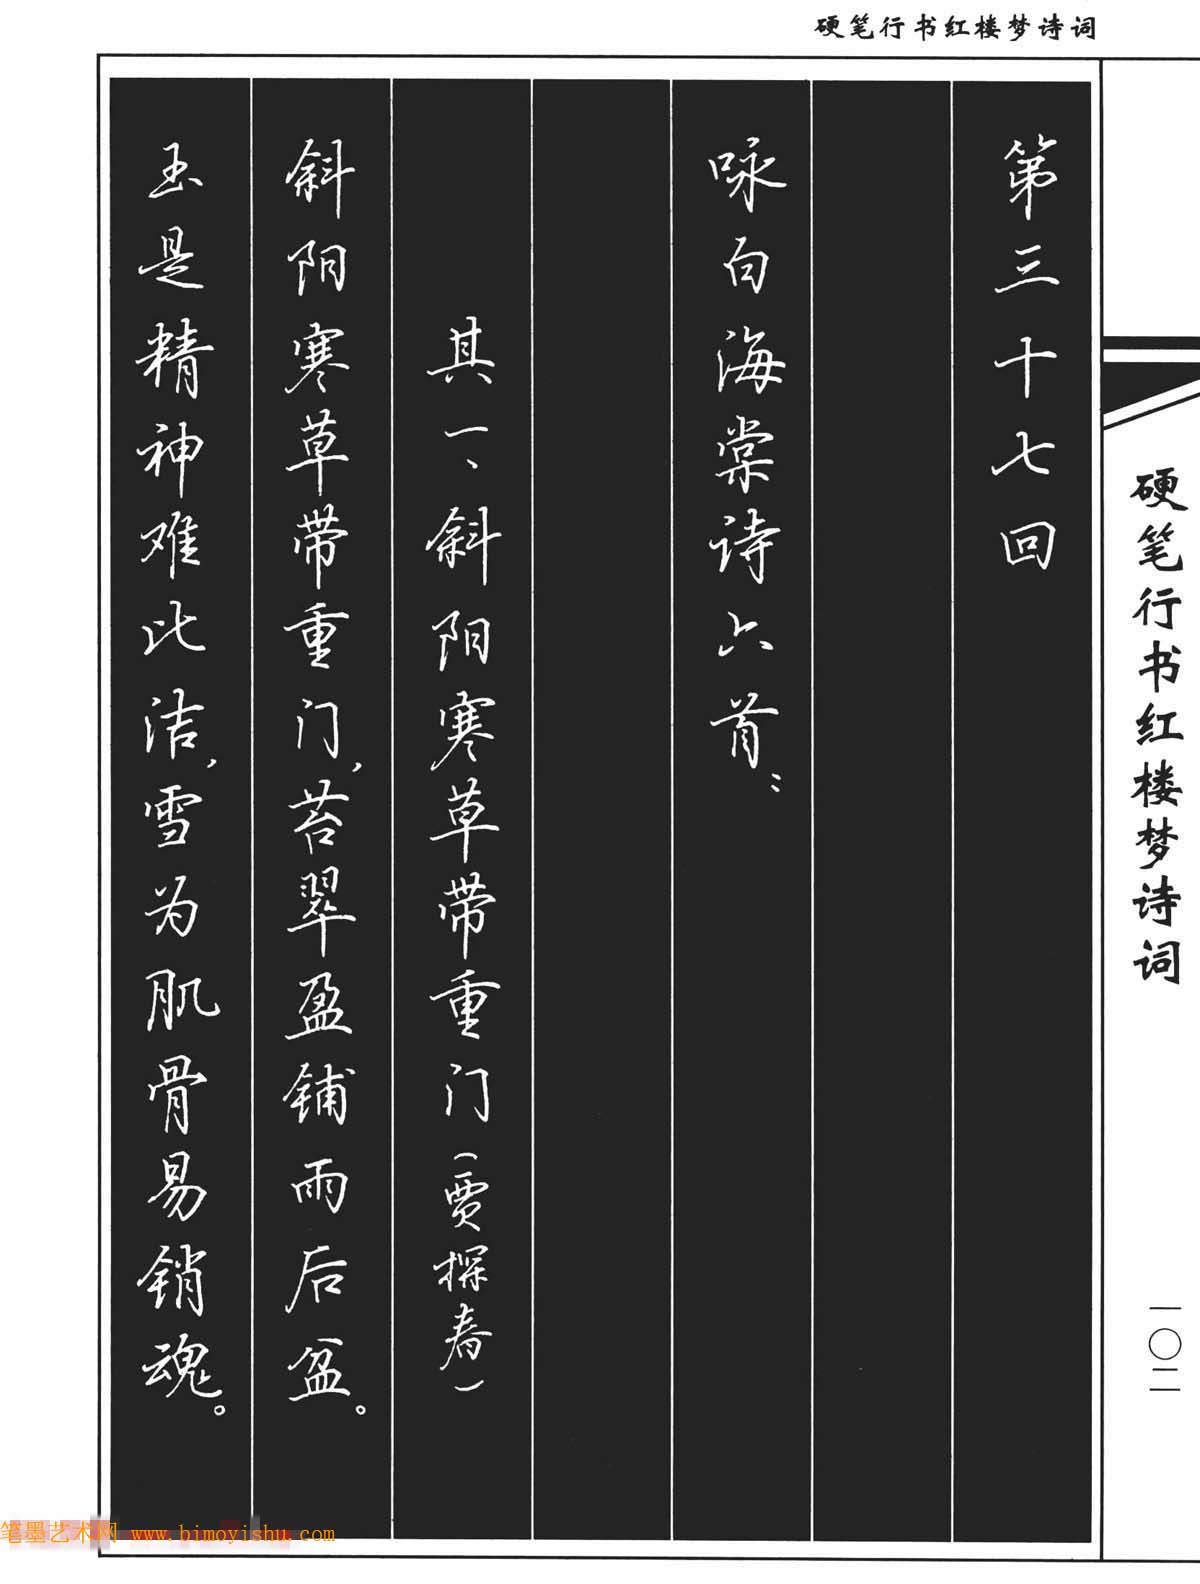 硬笔行书红楼梦诗词
硬笔行书红楼梦诗词
一〇二
第三十七回
咏白海棠诗六首：
其一、斜阳寒草带重门（贾探春）
斜阳寒草带重门，苔翠盈铺雨后盆。
玉是精神难比洁，雪为肌骨易销魂。
笔墨艺术网 www.bimoyishu.com